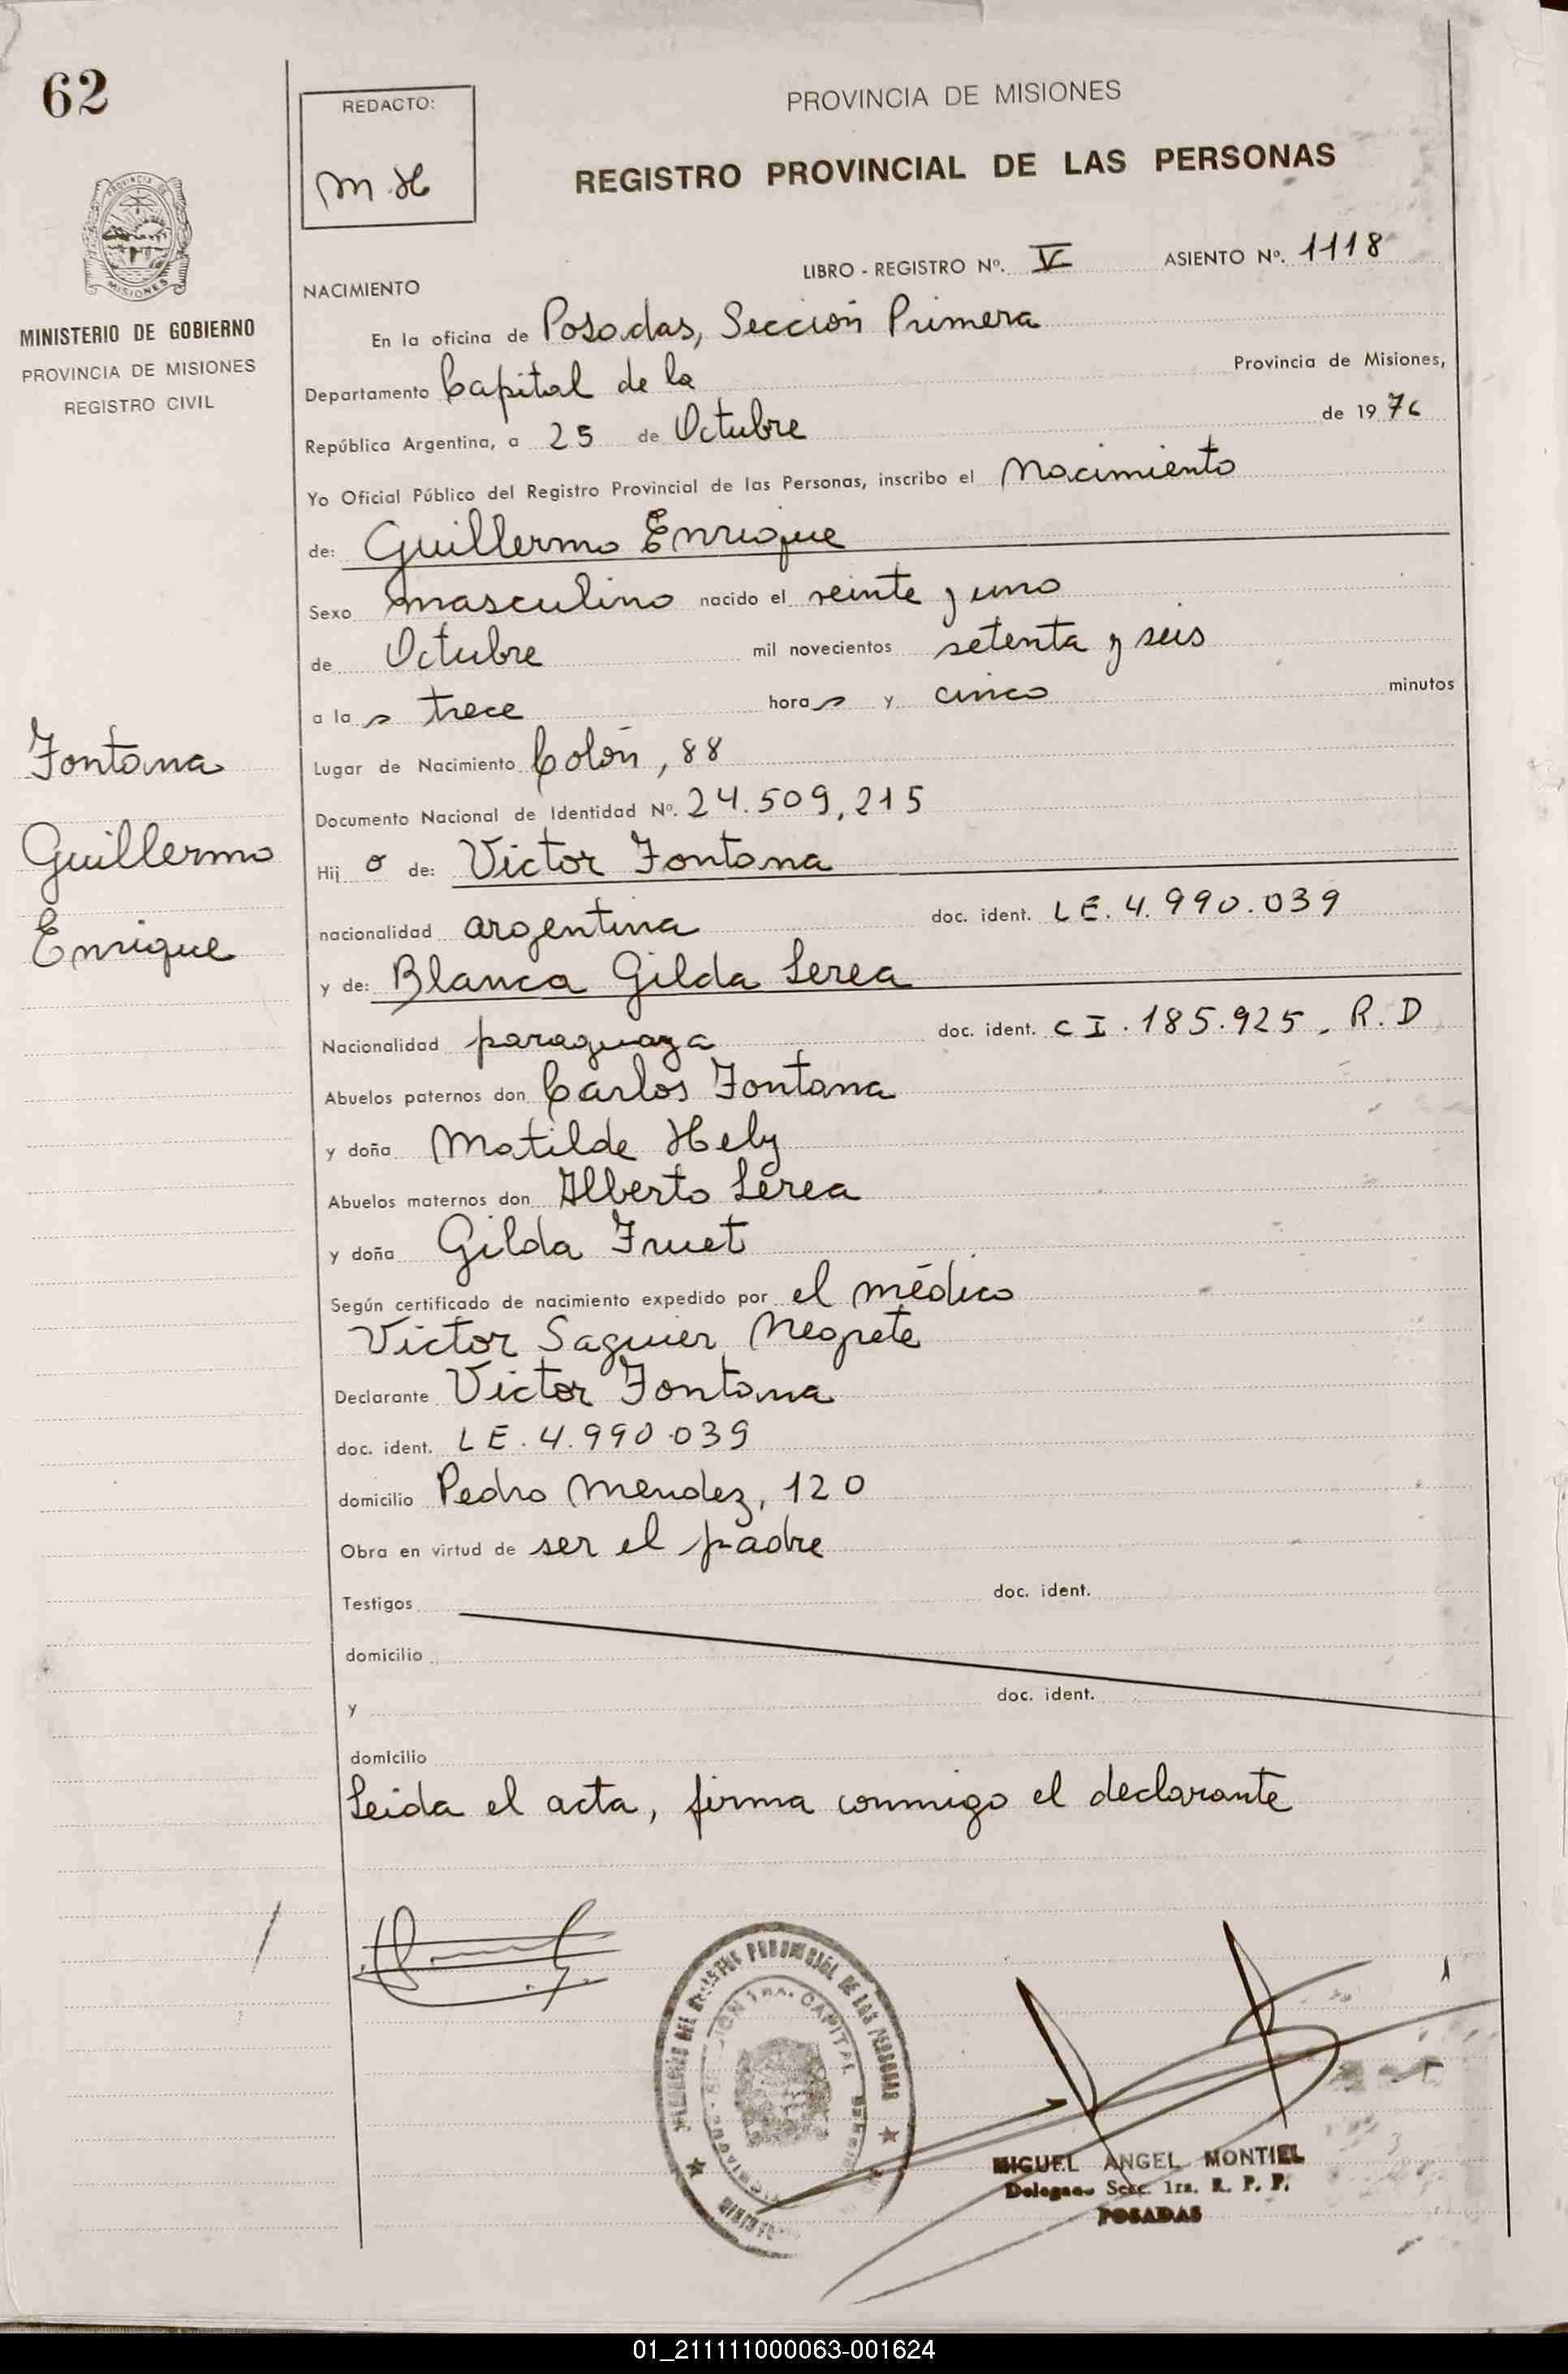 62
REDACTO:
M.H
PROVINCIA DE MISIONES
REGISTRO PROVINCIAL DE LAS PERSONAS
PROVINCIA DE
MISIONES
MINISTERIO DE GOBIERNO
PROVINCIA DE MISIONES
REGISTRO CIVIL
LIBRO - REGISTRO Nº. V ASIENTO Nº. 1118
NACIMIENTO
En la oficina de Posadas, Sección Primera
Departamento Capital de la Provincia de Misiones,
República Argentina, a 25 de Octubre de 1976
Yo Oficial Público del Registro Provincial de las Personas, inscribo el Nacimiento
de: Guillermo Enrique
Sexo masculino nacido el veinte y uno
de Octubre mil novecientos setenta y seis
a las trece horas y cinco minutos
Lugar de Nacimiento Colón, 88
Documento Nacional de Identidad Nº. 24.509,215
Hijo de: Victor Fontana
nacionalidad argentina doc. ident. LE. 4.990.039
y de: Blanca Gilda Lerea
Nacionalidad paraguaya doc. ident. CI. 185.925. R.D
Abuelos paternos don Carlos Fontana
y doña Matilde Hely
Abuelos maternos don Alberto Lerea
y doña Gilda Fruet
Según certificado de nacimiento expedido por el médico
Victor Saguier Negrete
Declarante Victor Fontana
doc. ident. LE. 4.990.039
domicilio Pedro Mendez, 120
Obra en virtud de ser el padre
Testigos doc. ident.
domicilio
y doc. ident.
domicilio
Leida el acta, firma conmigo el declarante
Fontana
Guillermo
Enrique
PROVINCIAL DE LAS PERSONAS
1RA. CAPITAL
MIGUEL ANGEL MONTIEL
Delegado Secc. 1ra. R. P. P.
POSADAS
01_211111000063-001624